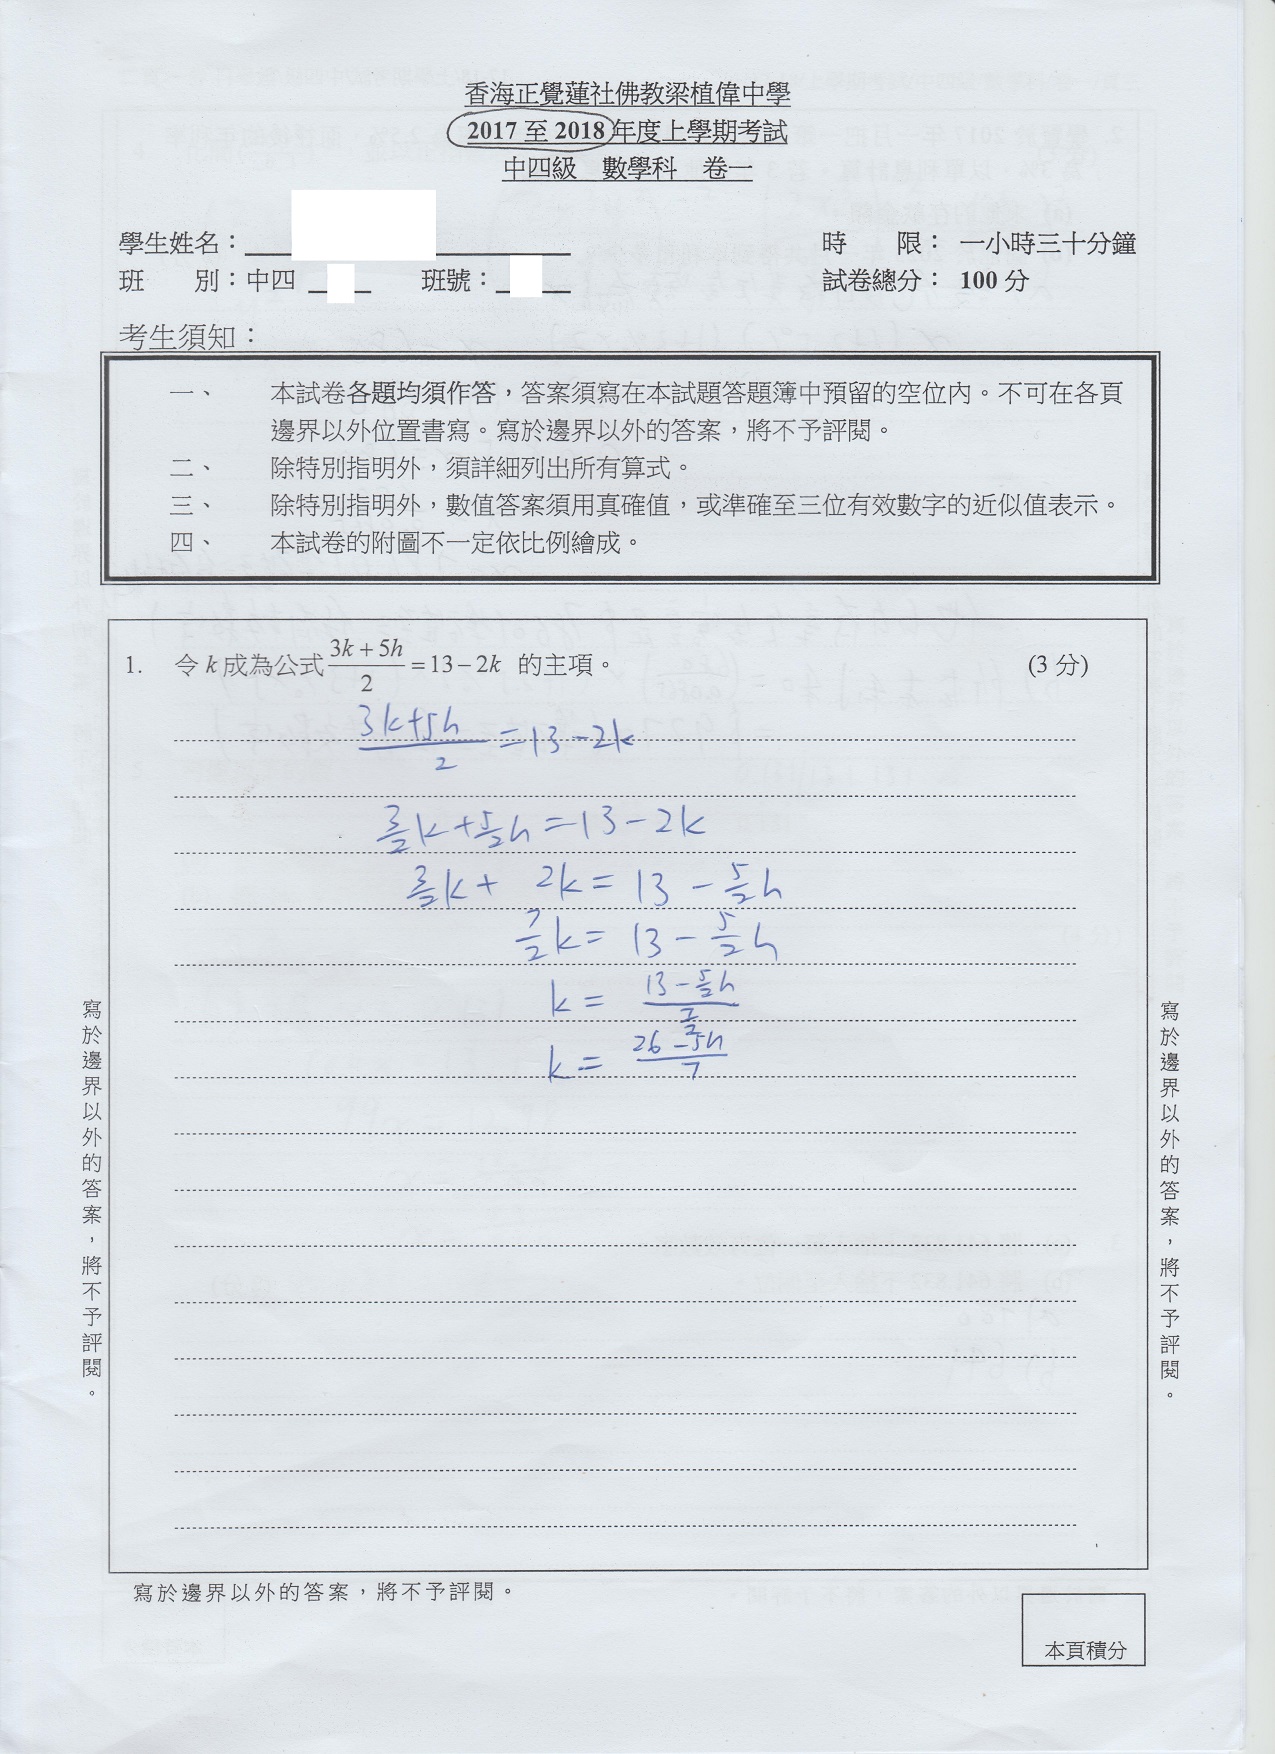 香海正覺蓮社佛教梁植偉中學
2017 至 2018 年度上學期考試
中四級 數學科 卷一
學生姓名：
時 限： 一小時三十分鐘
班 別：中四 班號：
試卷總分： 100 分
考生須知：
一、 本試卷各題均須作答，答案須寫在本試題答題簿中預留的空位內。不可在各頁
邊界以外位置書寫。寫於邊界以外的答案，將不予評閱。
二、 除特別指明外，須詳細列出所有算式。
三、 除特別指明外，數值答案須用真確值，或準確至三位有效數字的近似值表示。
四、 本試卷的附圖不一定依比例繪成。
1. 令 k 成為公式 (3k + 5h)/2 = 13 − 2k 的主項。 (3 分)
(3k+5h)/2 = 13 − 2k
3/2 k + 5/2 h = 13 − 2k
3/2 k + 2k = 13 − 5/2 h
7/2 k = 13 − 5/2 h
k = (13 − 5/2 h)/(7/2)
k = (26 − 5h)/7
寫於邊界以外的答案，將不予評閱。
寫於邊界以外的答案，將不予評閱。
寫於邊界以外的答案，將不予評閱。
本頁積分